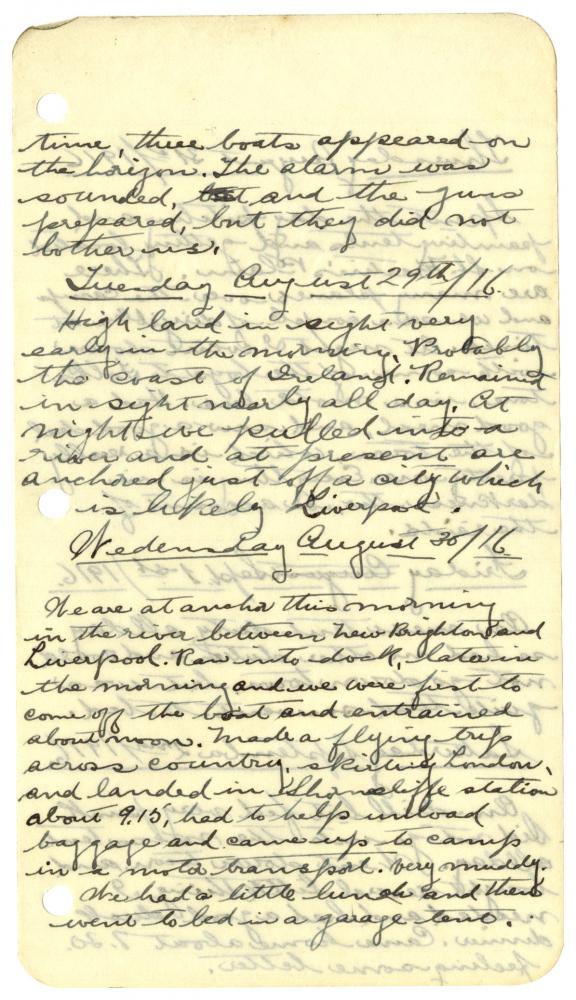 time, three boats appeared on
the horizon. The alarm was
sounded, and the guns
prepared, but they did not
bother us.
Tuesday August 29th/16.
High land in sight very
early in the morning. Probably
the coast of Ireland. Remained
in sight nearly all day. At
night we pulled into a
river and at present are
anchored just off a city which
is likely Liverpool.
Wedensday August 30/16
We are at anchor this morning
in the river between New Brighton and
Liverpool. Ran into dock, later in
the morning and we were first to
come off the boat and entrained
about noon. Made a flying trip
across country, skirting London,
and landed in Shorncliffe station
about 9.15, had to help unload
baggage and came up to camp
in a motor transport. Very muddy.
We had a little lunch and then
went to bed in a garage tent.